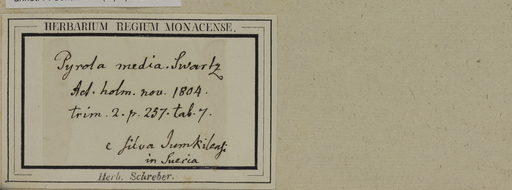 HERBARIUM REGIUM MONACENSE.
Pyrola media. Swartz
Act. holm. nov. 1804.
trim. 2. p. 257. tab. 7.
e silva Jumkilensi
in Suecia
Herb. Schreber.